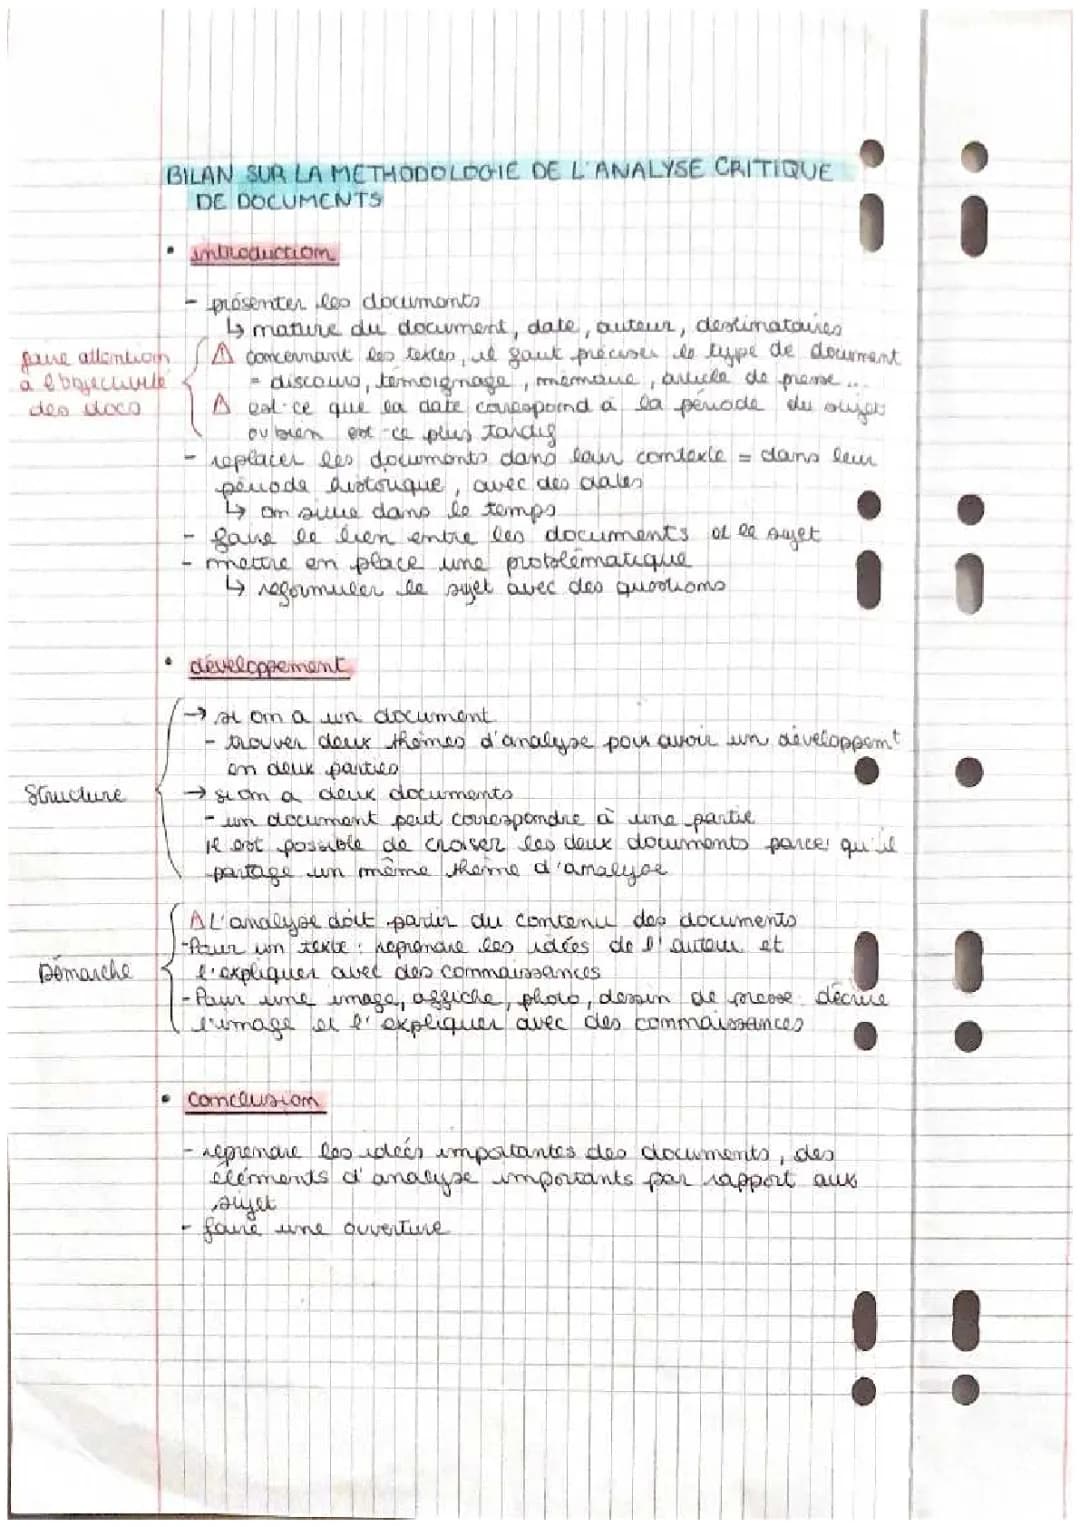 BILAN SUR LA METHODOLOGIE DE L'ANALYSE CRITIQUE
DE DOCUMENTS
• introduction
- présenter les documents
↳ nature du document, date, auteur, destinataires
faire attention
à l'objectivité
des docs
⚠ concernant les textes, il faut préciser le type de document
= discours, témoignage, mémoire, article de presse...
⚠ est-ce que la date correspond à la période du sujet
ou bien est-ce plus tardif
- replacer les documents dans leur contexte = dans leur
période historique, avec des dates
↳ on situe dans le temps
- faire le lien entre les documents et le sujet
- mettre en place une problématique
↳ reformuler le sujet avec des questions
• développement
Structure
→ si on a un document
- trouver deux thèmes d'analyse pour avoir un développemt
en deux parties
→ si on a deux documents
- un document peut correspondre à une partie
il est possible de croiser les deux documents parce qu'il
partage un même thème d'analyse
Démarche
⚠ L'analyse doit partir du contenu des documents
- Pour un texte : reprendre les idées de l'auteur et
l'expliquer avec des connaissances
- Pour une image, affiche, photo, dessin de presse : décrire
l'image et l'expliquer avec des connaissances
• conclusion
- reprendre les idées importantes des documents, des
éléments d'analyse importants par rapport aux
sujet
- faire une ouverture